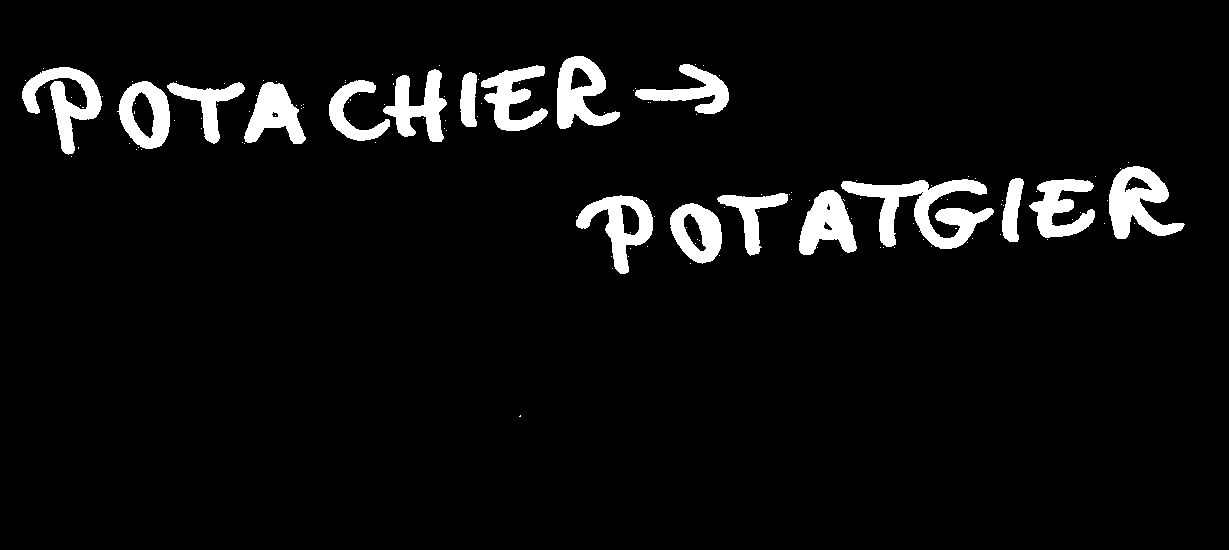 POTACHIER →
POTATGIER